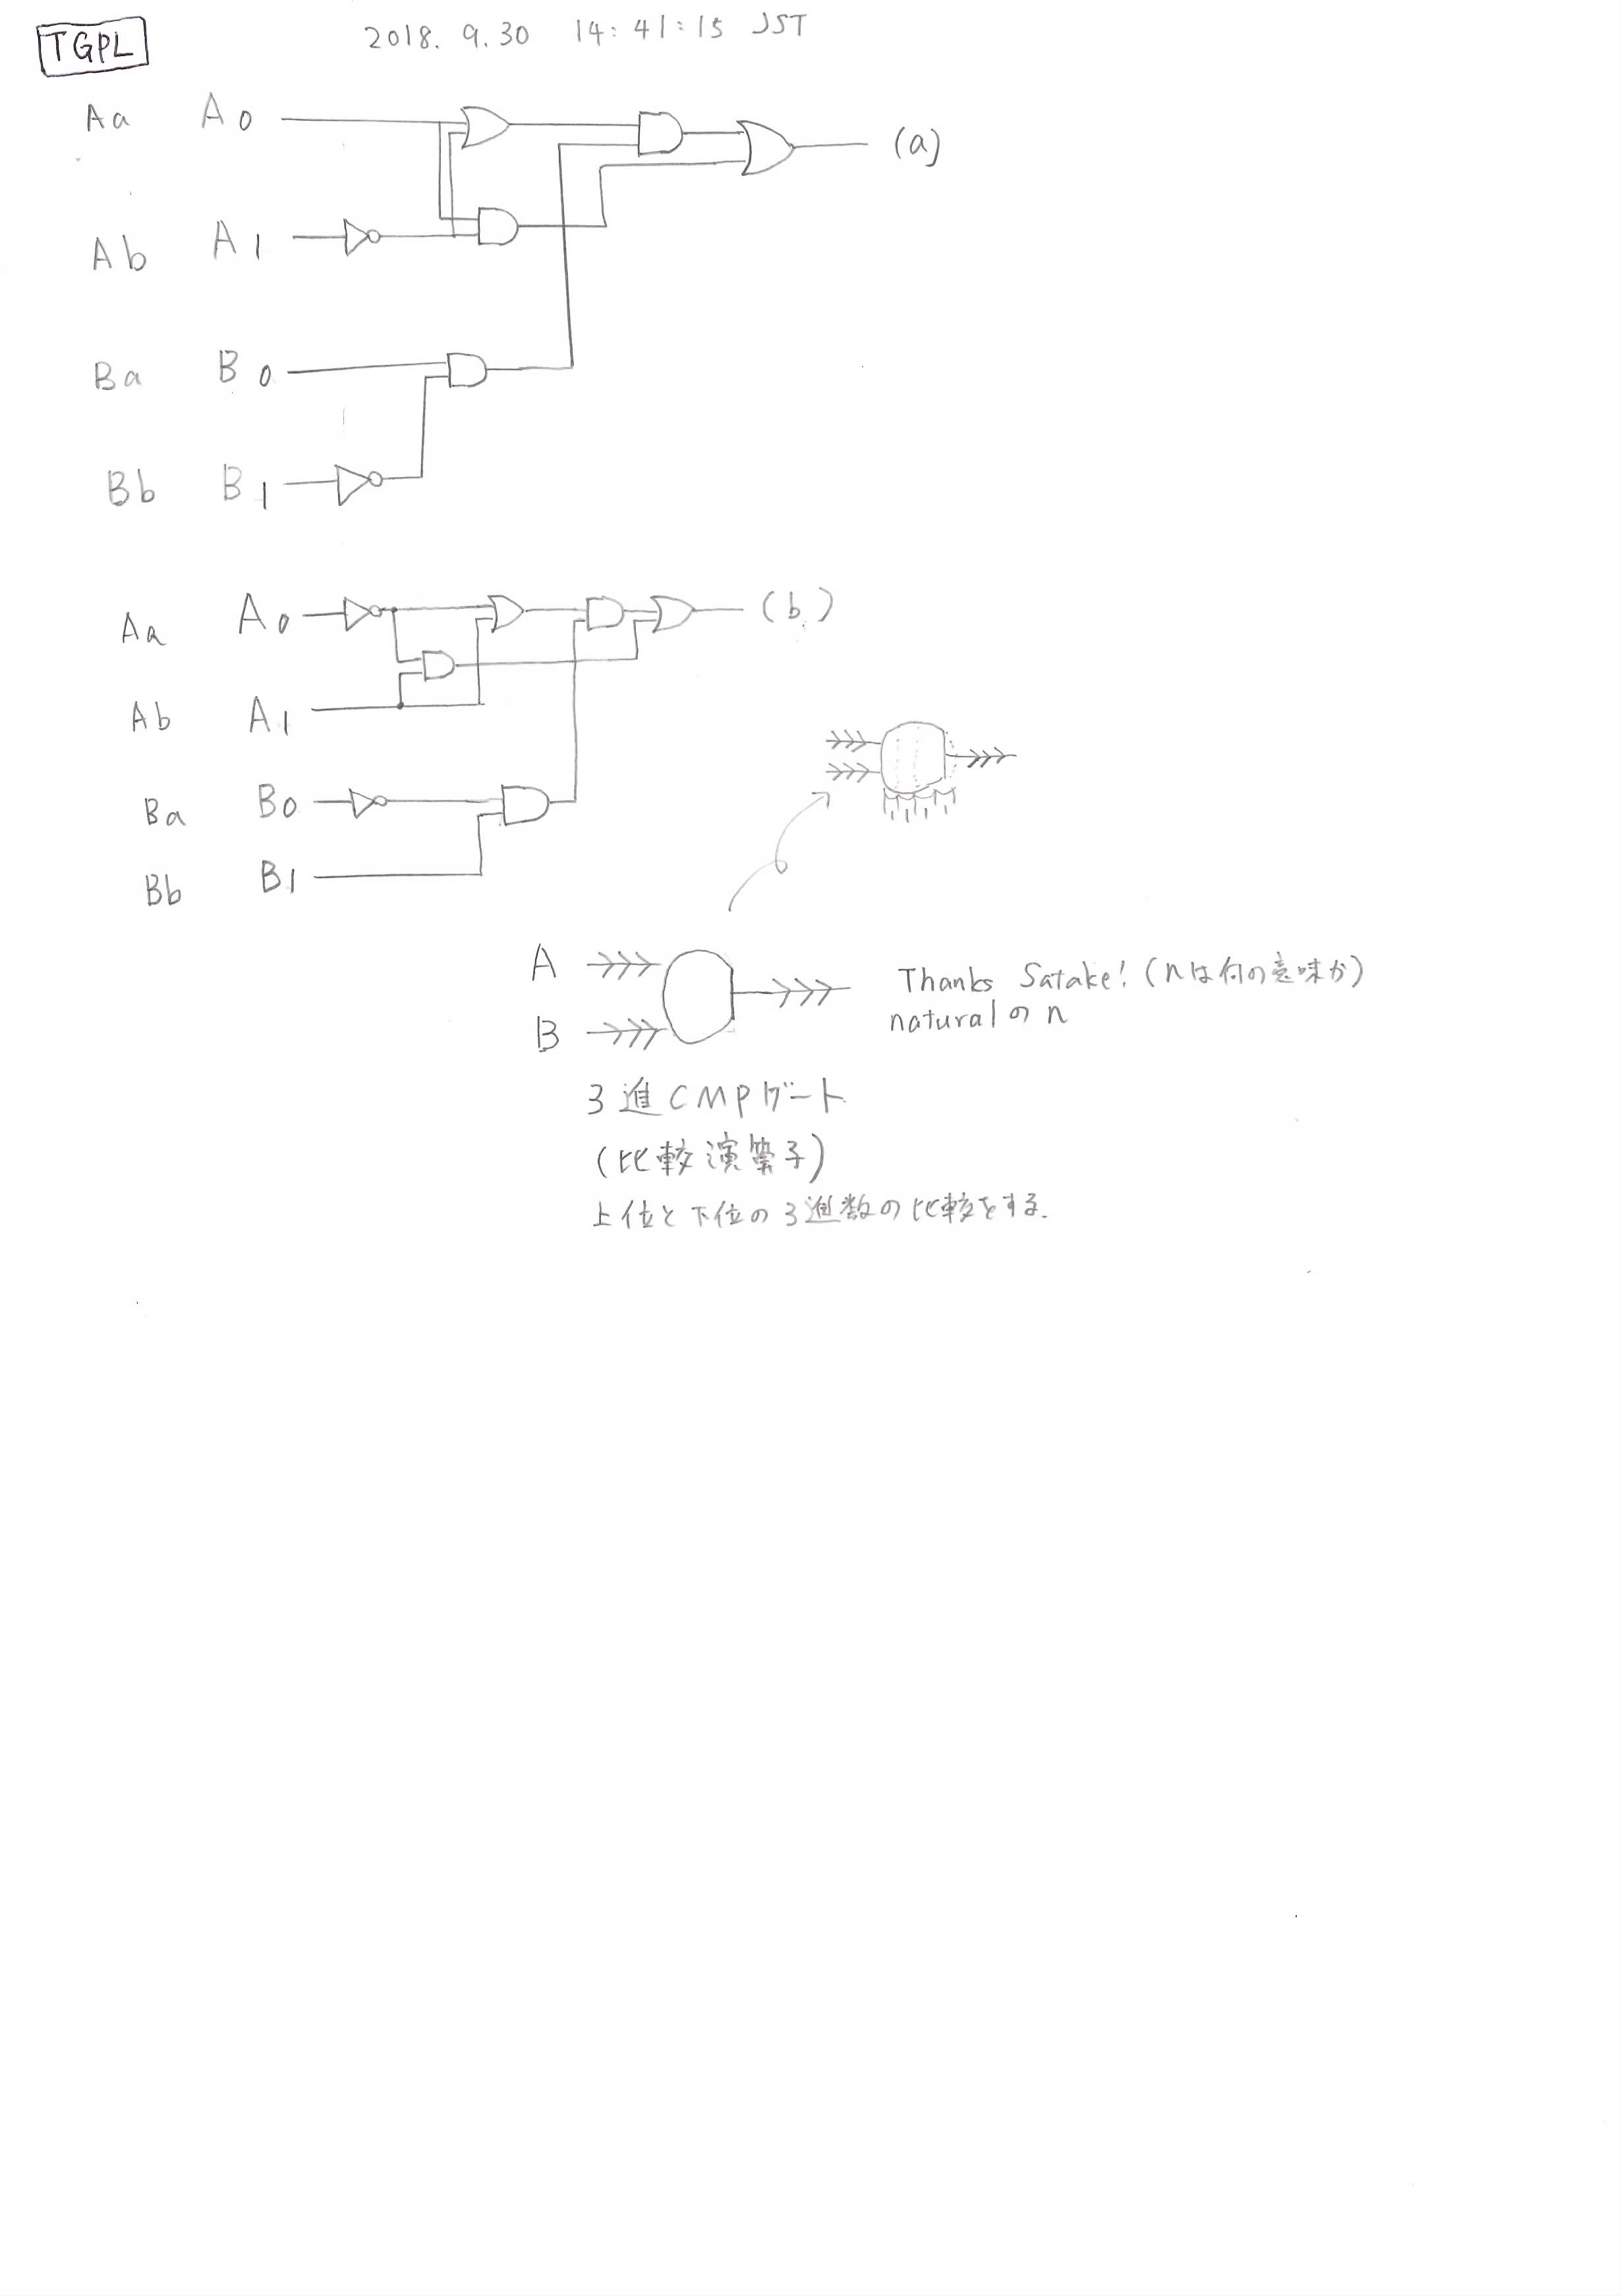 TGPL
2018. 9. 30 14:41:15 JST
Aa A0
(a)
Ab A1
Ba B0
Bb B1
Aa A0
(b)
Ab A1
Ba B0
Bb B1
A
B
Thanks Satake! (nは何の意味か)
naturalのn
3進CMPゲート
(比較演算子)
上位と下位の3進数の比較をする.